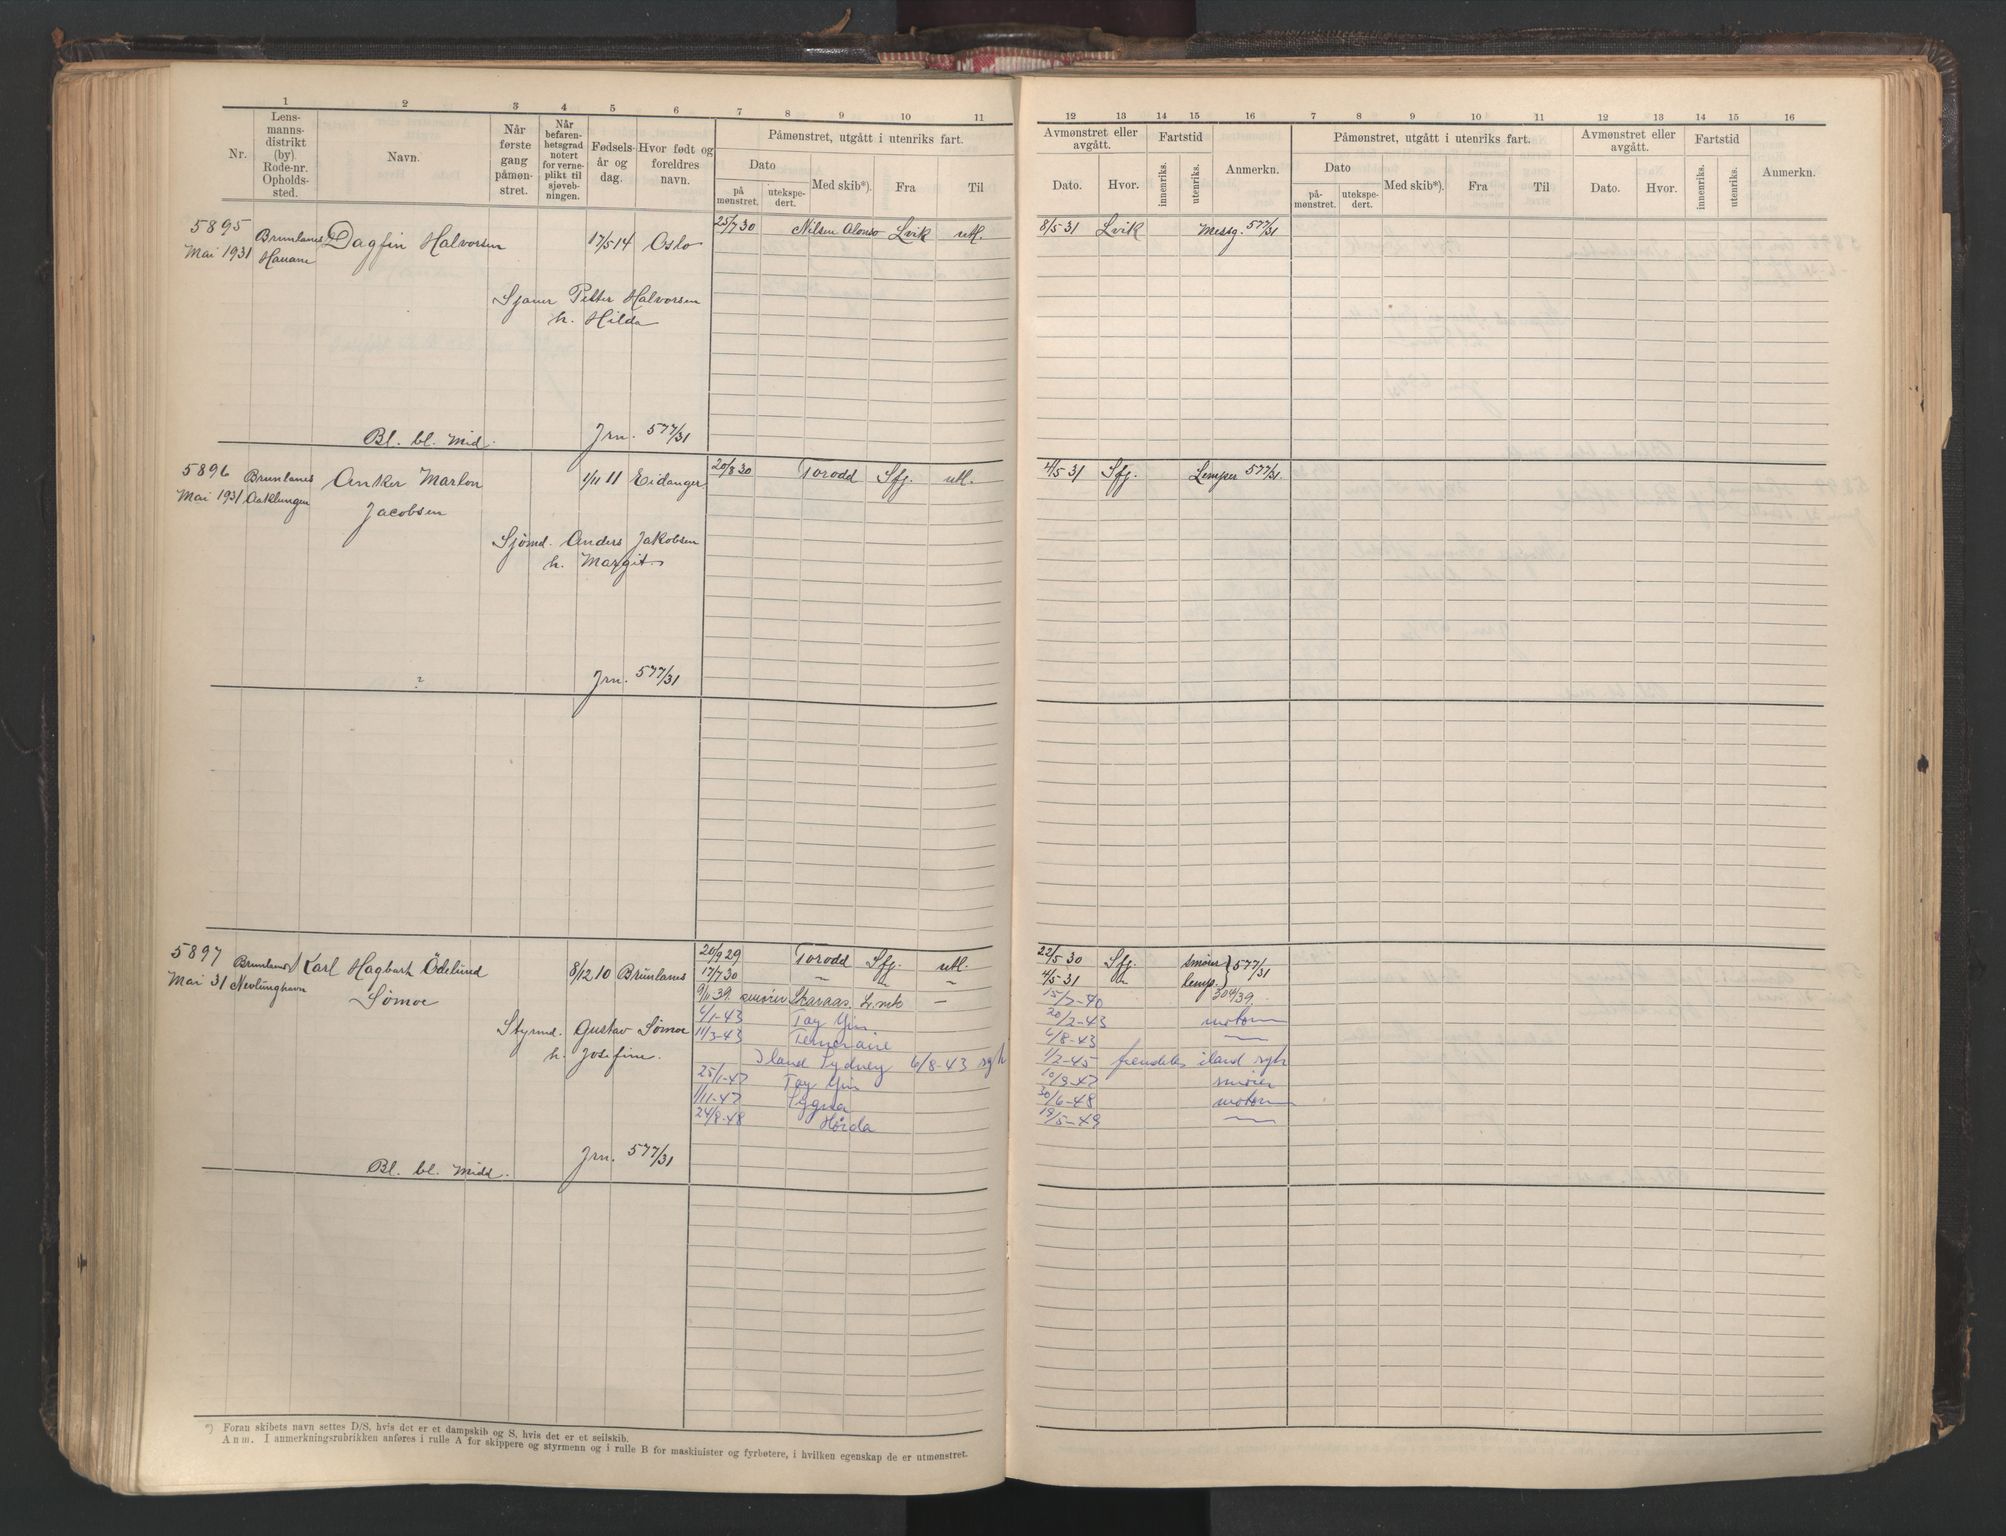 1 2 3 4 5 6 7 8 9 10 11
Nr.
Lens-
manns-
distrikt
(by).
Rode-nr.
Opholds-
sted.
Navn.
Når
første
gang
påmøn-
stret.
Når
befaren-
hetsgrad
notert
for verne-
plikt til
sjøveb-
ningen.
Fødsels-
år og
dag.
Hvor født og
foreldres
navn.
Påmønstret, utgått i utenriks fart.
Dato
på
mønstret.
utekspe-
dert.
Med skib*).
Fra
Til
5895 Brunlanes Dagfin Halvorsen 17/5 14 Oslo 25/7 30 Nilsen Alonso Lvik utl.
Mai 1931 Havane
Sjauer Petter Halvorsen
h. Hilda
Bl. bl. mid. Jrn. 577/31
5896 Brunlanes Anker Marlon 1/11 11 Eidanger 20/8 30 Torodd Sfj. utl.
Mai 1931 Aaklungen Jacobsen
Sjømd. Anders Jakobsen
h. Margit
? Jrn. 577/31
5897 Brunlanes Karl Hagbart Ödelund 8/12 10 Brunlanes 20/9 29 Torodd Sfj. utl.
Mai 31 Nevlunghavn Sømoe 17/7 30 — " "
9/11 39. smører Skaraas L.vik —
Styrmd. Gustav Sømoe 6/1-43 Tay Yin
h. Josefine. 11/3-43 Temeraire
Iland Sydney 6/8-43 syk
25/1-47 Tay Yin
1/11-47 Lygna
24/8-48 Hörda
Bl. bl. midd. Jrn. 577/31
*) Foran skibets navn settes D/S, hvis det er et dampskib og S, hvis det er et seilskib.
Anm. I anmerkningsrubrikken anføres i rulle A for skippere og styrmenn og i rulle B for maskinister og fyrbøtere, i hvilken egenskap de er utmønstret.
12 13 14 15 16 7 8 9 10 11 12 13 14 15 16
Avmønstret eller
avgått.
Dato.
Hvor.
Fartstid
innenriks.
utenriks.
Anmerkn.
Påmønstret, utgått i utenriks fart.
Dato
på
mønstret.
utekspe-
dert.
Med skib*).
Fra
Til
Avmønstret eller
avgått.
Dato.
Hvor.
Fartstid
innenriks.
utenriks.
Anmerkn.
8/5-31 Lvik Messg. 577/31
4/5 31 Sfj. Lemper 577/31.
22/5 30 Sfj. smører } 577/31
4/5-31 " lemp.
15/7-40
20/2-43 motorm
6/8-43 —
1/2-45 iland syk
10/9-47 smører
30/6-48 motorm
19/5-49 —